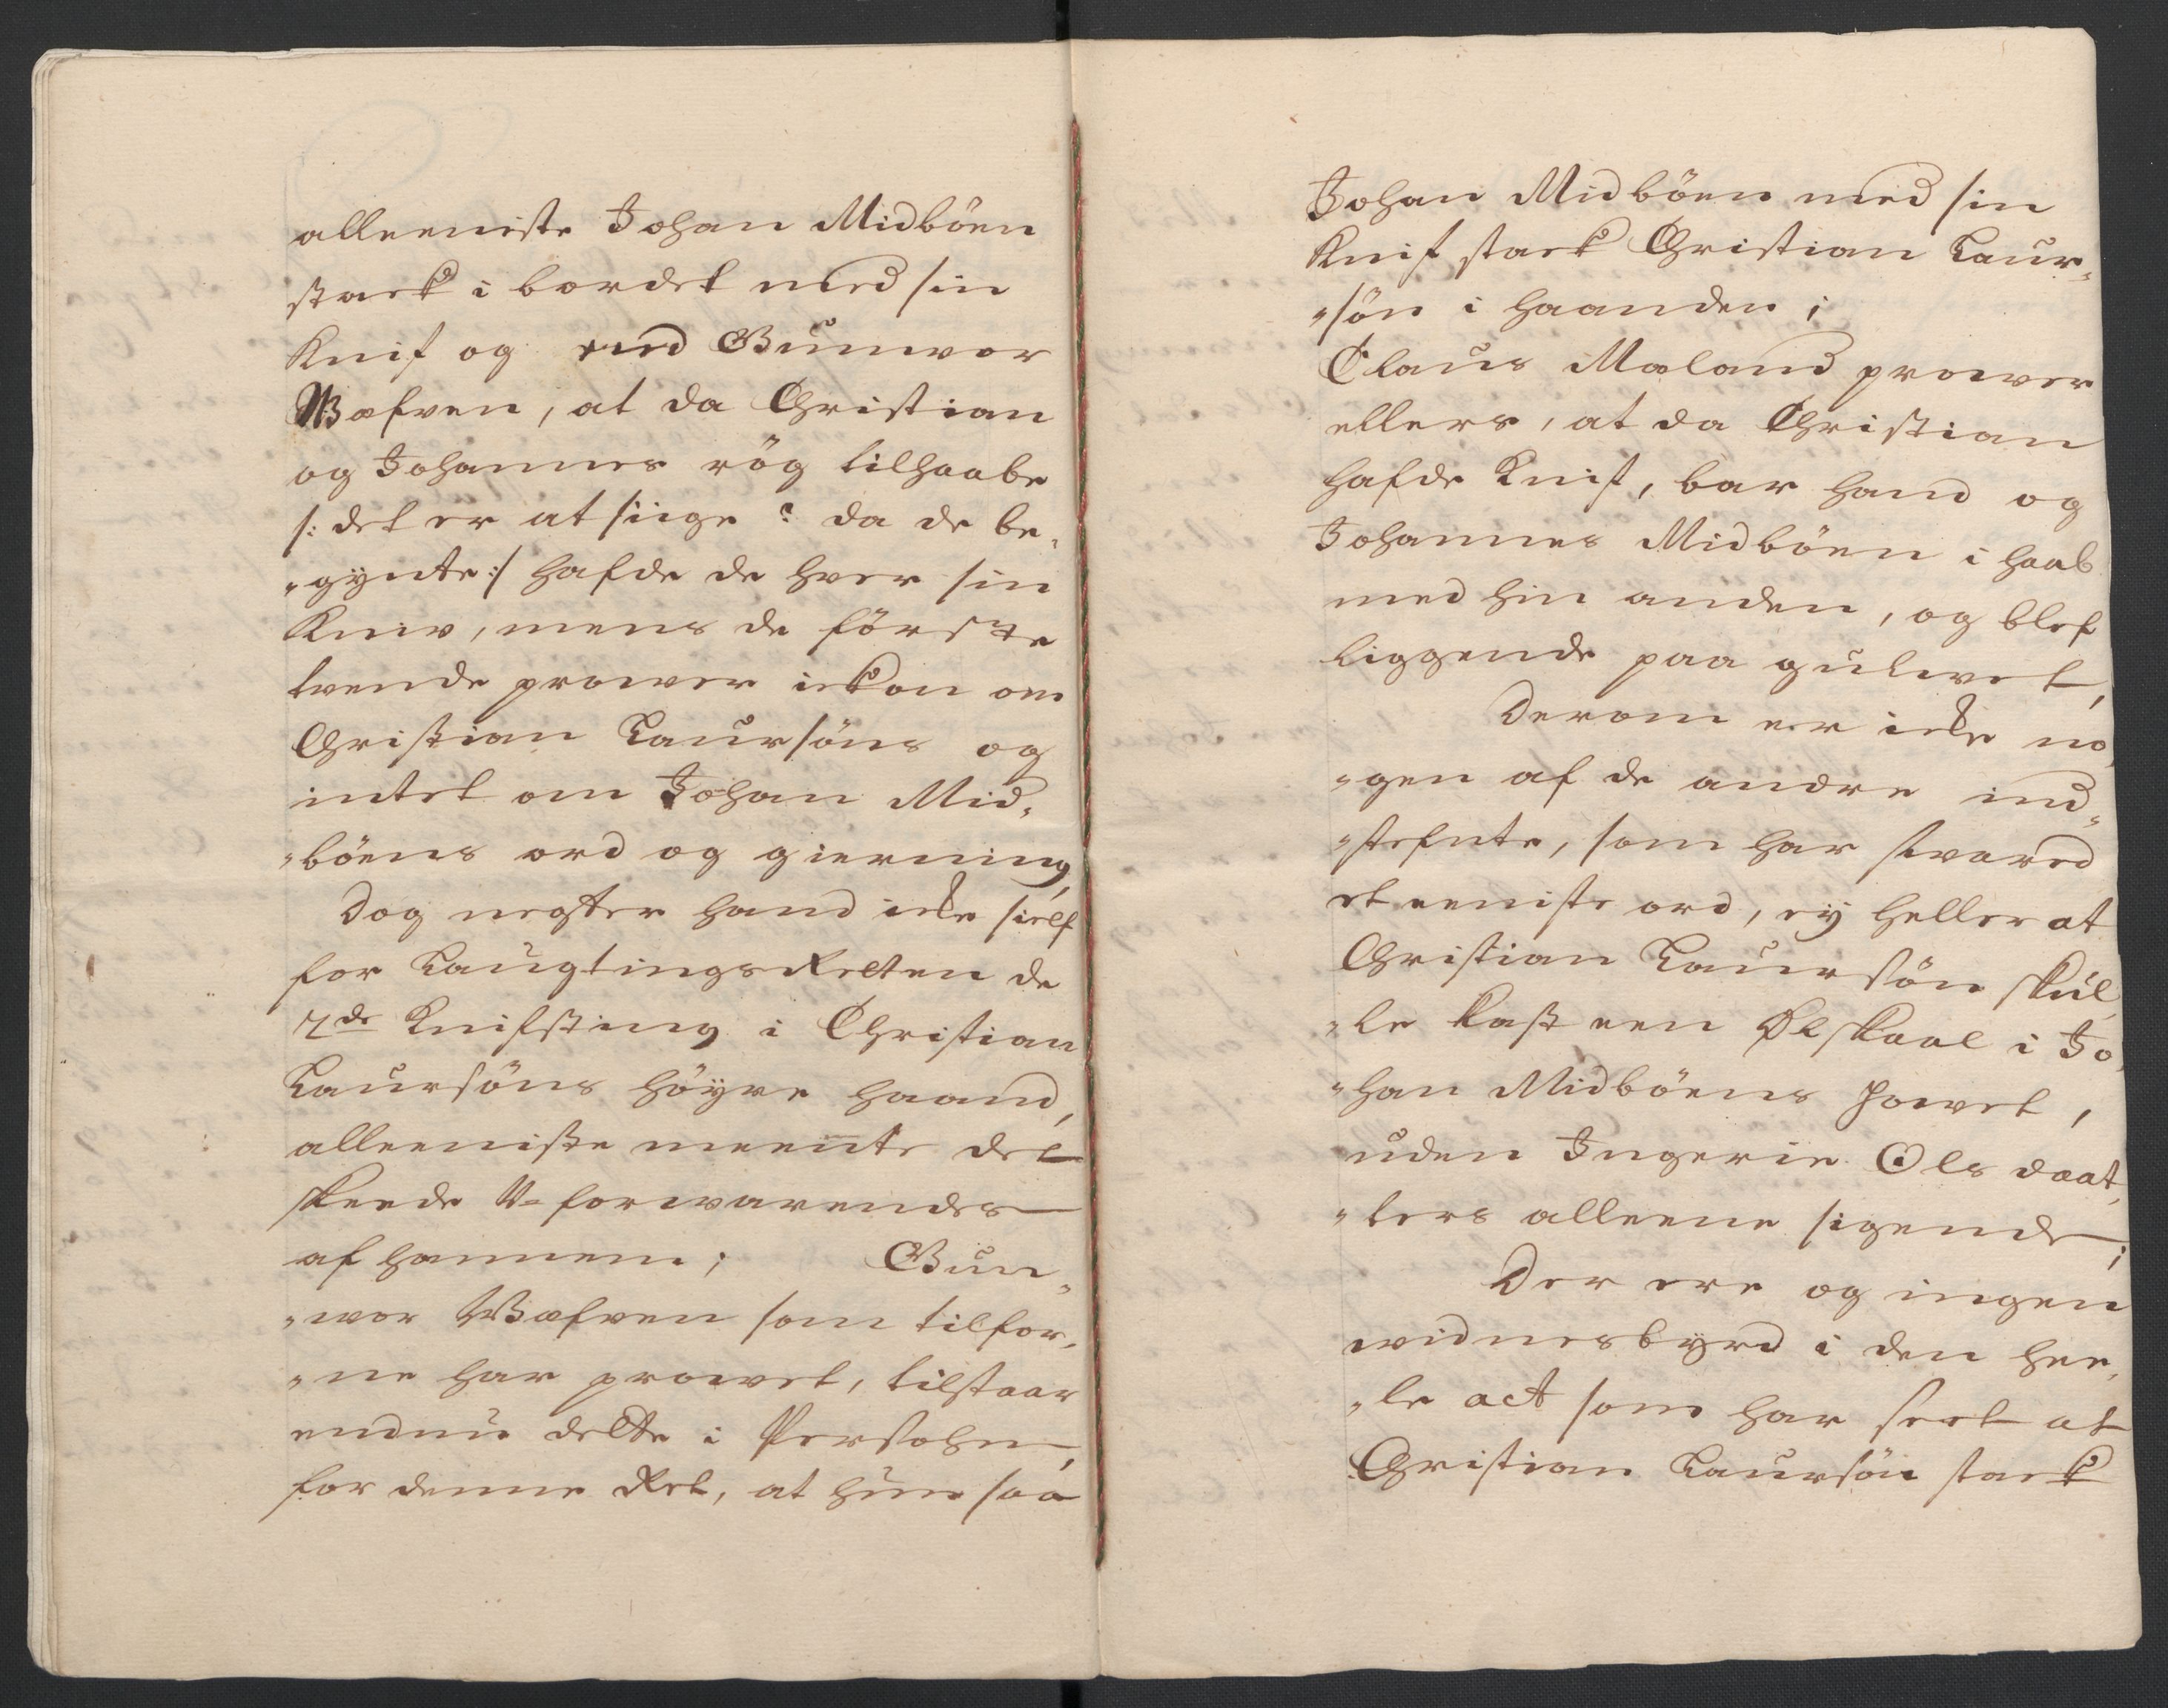 alleeniste Johan Midböen
stack i bordet med sin
Knif og end Gunwor
Wefven, at da Christian
og Johannes røg tilhaabe
/: det er at siige : da de be„
„gynte :/ hafde de hver sin
Kniv, mens de förste
tvende prower ickon om
Christian Laursöns og
intet om Johan Mid„
„böens ord og gierning,
Dog negter hand icke sielf
for Laugtings Retten de
2de Knifsting i Christian
Laursöns höyre haand,
alleeniste meente det
skeede U-forwarendes
af hannem; Gun„
„wor Wefven som tilfor„
„ne har prowet, tilstaar
endnu dette i Persohn,
for denne Ret, at hun saa
Johan Midböen med sin
Knif stack Christian Laur„
„sön i haanden;
Claus Maland prower
ellers, at da Christian
hafde Knif, bar hand og
Johannes Midböen i haab
med hin anden, og blef
liggende paa gulwet,
Derom er icke no„
„gen af de andre ind„
„stefnte, som har svared
et eeniste ord, ey heller at
Christian Laursön skul„
„le kast een Ølskaal i Jo„
„han Midböens howet,
uden Ingerie Ols daat„
„ters alleene sigende;
Der ere og ingen
widnesbyrd i den hee„
„le act som har seet at
Christian Laursön stack